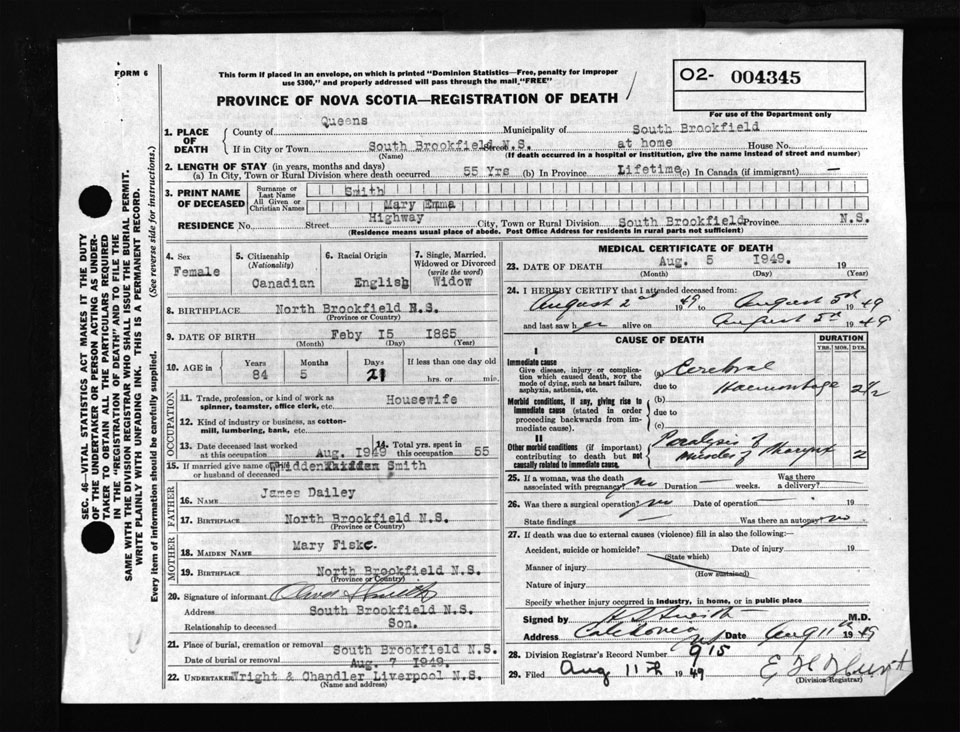 FORM 6
This form if placed in an envelope, on which is printed "Dominion Statistics—Free, penalty for improper
use $300," and properly addressed will pass through the mail "FREE"
O2- 004345
For use of the Department only
PROVINCE OF NOVA SCOTIA—REGISTRATION OF DEATH
SEC. 46—VITAL STATISTICS ACT MAKES IT THE DUTY
OF THE UNDERTAKER OR PERSON ACTING AS UNDER-
TAKER TO OBTAIN ALL THE PARTICULARS REQUIRED
IN THE "REGISTRATION OF DEATH" AND TO FILE THE
SAME WITH THE DIVISION REGISTRAR WHO SHALL ISSUE THE BURIAL PERMIT.
WRITE PLAINLY WITH UNFADING INK. THIS IS A PERMANENT RECORD.
Every item of information should be carefully supplied. (See reverse side for instructions.)
1. PLACE OF DEATH
County of Queens Municipality of South Brookfield
If in City or Town South Brookfield N.S. Street at home House No.
(Name) (If death occurred in a hospital or institution, give the name instead of street and number)
2. LENGTH OF STAY (in years, months and days)
(a) In City, Town or Rural Division where death occurred 55 Yrs (b) In Province Lifetime (c) In Canada (if immigrant) —
3. PRINT NAME OF DECEASED
Surname or Last Name Smith
All Given or Christian Names Mary Emma
RESIDENCE No. Street Highway City, Town or Rural Division South Brookfield Province N.S.
(Residence means usual place of abode. Post Office Address for residents in rural parts not sufficient)
4. Sex Female
5. Citizenship (Nationality) Canadian
6. Racial Origin English
7. Single, Married, Widowed or Divorced (write the word) Widow
8. BIRTHPLACE North Brookfield N.S.
(Province or Country)
9. DATE OF BIRTH Feby I5 I865
(Month) (Day) (Year)
10. AGE in Years 84 Months 5 Days 21 If less than one day old
hrs. or min.
OCCUPATION
11. Trade, profession, or kind of work as
spinner, teamster, office clerk, etc. Housewife
12. Kind of industry or business, as cotton-
mill, lumbering, bank, etc.
13. Date deceased last worked
at this occupation Aug. 1949
14. Total yrs. spent
in this occupation 55
15. If married give name of wife
or husband of deceased Smith
FATHER
16. NAME James Dailey
17. BIRTHPLACE North Brookfield N.S.
(Province or Country)
MOTHER
18. MAIDEN NAME Mary Fiske.
19. BIRTHPLACE North Brookfield N.S.
(Province or Country)
20. Signature of informant Smith
Address South Brookfield N.S.
Relationship to deceased Son.
21. Place of burial, cremation or removal South Brookfield N.S.
Date of burial or removal Aug. 7 1949.
22. UNDERTAKER Wright & Chandler Liverpool N.S.
(Name and address)
MEDICAL CERTIFICATE OF DEATH
23. DATE OF DEATH Aug. 5 1949. 19
(Month) (Day) (Year)
24. I HEREBY CERTIFY that I attended deceased from:
August 2nd 1949 to August 5th 1949
and last saw her alive on August 5th 1949
CAUSE OF DEATH DURATION
YRS. MOS. DYS.
I
Immediate cause
Give disease, injury or complica-
tion which caused death, NOT the
mode of dying, such as heart failure,
asphyxia, asthenia, etc.
(a) Cerebral
due to Haemorrhage 2 1/2
Morbid conditions, if any, giving rise to
immediate cause (stated in order
proceeding backwards from im-
mediate cause).
(b)
due to
(c)
II
Other morbid conditions (if important)
contributing to death but not
causally related to immediate cause.
Paralysis of
muscles of Pharynx 2
25. If a woman, was the death
associated with pregnancy? no Duration — weeks. Was there
a delivery?
26. Was there a surgical operation? no Date of operation 19
State findings — Was there an autopsy? no
27. If death was due to external causes (violence) fill in also the following:—
Accident, suicide or homicide? Date of injury 19
(State which)
Manner of injury
(How sustained)
Nature of injury
Specify whether injury occurred in industry, in home, or in public place
Signed by M.D.
Address Caledonia Date Aug 11th 1949
28. Division Registrar's Record Number 915
29. Filed Aug 11th 1949
(Division Registrar)